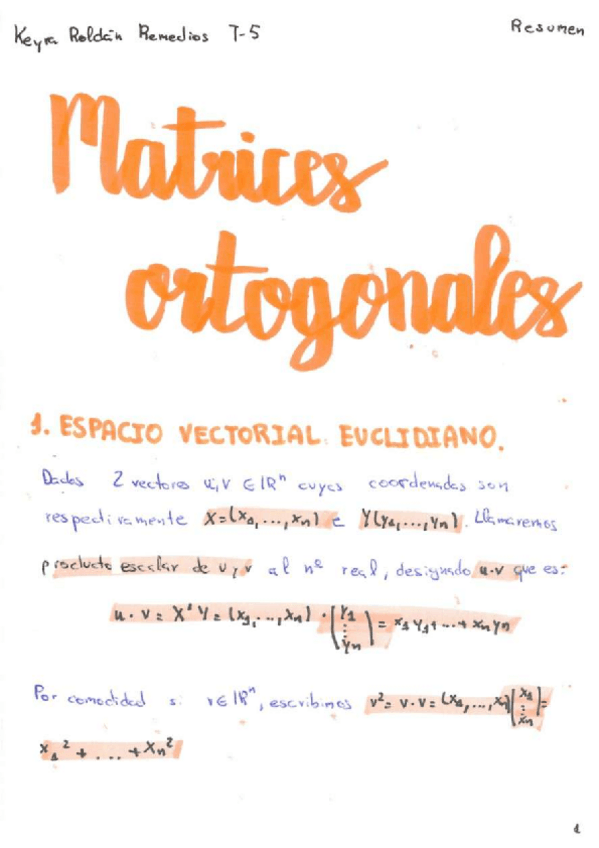 Keyra Roldán Remedios T-5
Resumen
Matrices
ortogonales
1. ESPACIO VECTORIAL EUCLIDIANO.
Dados 2 vectores u,v ∈ ℝⁿ cuyas coordenadas son
respectivamente X=(x₁,...,xₙ) e Y(y₁,...,yₙ). Llamaremos
producto escalar de u y v al nº real, designado u·v que es:
u · v = Xᵗ Y = (x₁,...,xₙ) · (y₁ ⋮ yₙ) = x₁y₁+...+xₙyₙ
Por comodidad si v∈ℝⁿ, escribimos v²= v·v= (x₁,...,xₙ)(x₁ ⋮ xₙ)=
x₁² + ... + xₙ²
1